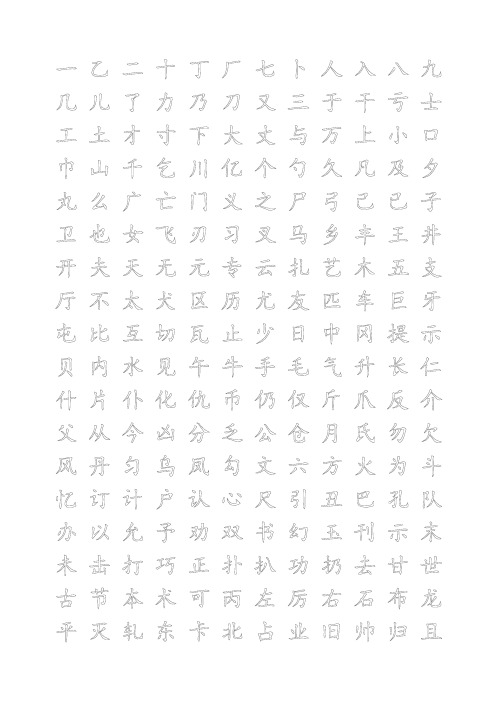 一乙二十丁厂七卜人入八九
几儿了力乃刀又三于干亏士
工土才寸下大丈与万上小口
巾山千乞川亿个勺久凡及夕
丸么广亡门义之尸弓己已子
卫也女飞刃习叉马乡车王井
开夫天无元专云扎艺木五支
厅不太犬区历尤友匹车巨牙
屯比互切瓦止少日中冈提示
贝内水见午牛手毛气升长仁
什片仆化仇币仍仅斤爪反介
父从今凶分乏公仓月氏勿欠
风丹匀乌凤勾文六方火为斗
忆订计户认心尺引丑巴孔队
办以允予劝双书幻玉刊示末
未击打巧正扑扒功扔去甘世
古节本术可丙左厉右石布龙
平灭轧东卡北占业旧帅归且